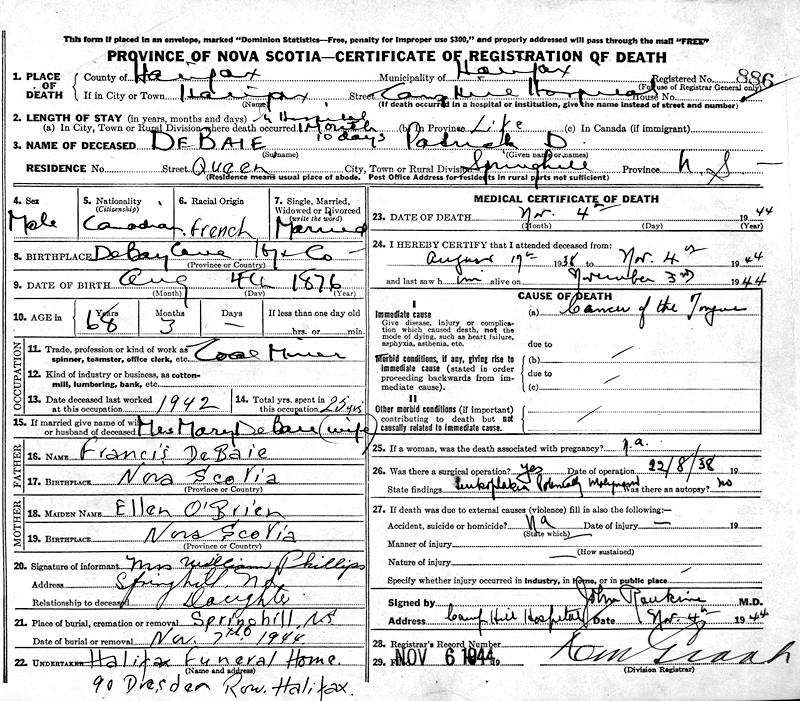 This form if placed in an envelope, marked "Dominion Statistics—Free, penalty for improper use $300," and properly addressed will pass through the mail "FREE"
PROVINCE OF NOVA SCOTIA—CERTIFICATE OF REGISTRATION OF DEATH
1. PLACE OF DEATH County of Halifax Municipality of Halifax Registered No. 886
(For use of Registrar General only)
If in City or Town Halifax Street Camp Hill Hospital House No.
(Name) (If death occurred in a hospital or institution, give the name instead of street and number)
2. LENGTH OF STAY (in years, months and days) in Hospital
(a) In City, Town or Rural Division where death occurred 1 Month 10 days (b) In Province Life (c) In Canada (if immigrant)
3. NAME OF DECEASED DEBAIE Patrick D.
(Surname) (Given name or names)
RESIDENCE No. Street Queen City, Town or Rural Division Springhill Province N.S —
(Residence means usual place of abode. Post Office Address for residents in rural parts not sufficient)
4. Sex Male
5. Nationality (Citizenship) Canadian
6. Racial Origin French
7. Single, Married, Widowed or Divorced (write the word) Married
8. BIRTHPLACE DeBay Cove Hfx Co
(Province or Country)
9. DATE OF BIRTH Aug 4th 1876
(Month) (Day) (Year)
10. AGE in Years 68 Months 3 Days — If less than one day old
hrs. or min.
OCCUPATION
11. Trade, profession or kind of work as spinner, teamster, office clerk, etc. Coal Miner
12. Kind of industry or business, as cotton-mill, lumbering, bank, etc.
13. Date deceased last worked at this occupation 1942
14. Total yrs. spent in this occupation 25 yrs
15. If married give name of wife or husband of deceased Mrs Mary DeBaie (wife)
FATHER
16. NAME Francis DeBaie
17. BIRTHPLACE Nova Scotia
(Province or Country)
MOTHER
18. MAIDEN NAME Ellen O'Brien
19. BIRTHPLACE Nova Scotia
(Province or Country)
20. Signature of informant Mrs William Phillips
Address Springhill NS
Relationship to deceased Daughter
21. Place of burial, cremation or removal Springhill, NS
Date of burial or removal Nov. 7th 1944
22. UNDERTAKER Halifax Funeral Home.
(Name and address)
90 Dresden Row. Halifax.
MEDICAL CERTIFICATE OF DEATH
23. DATE OF DEATH Nov. 4th 1944
(Month) (Day) (Year)
24. I HEREBY CERTIFY that I attended deceased from:
August 19th 1938 to Nov. 4th 1944
and last saw him alive on November 3rd 1944
CAUSE OF DEATH
I
Immediate cause (a) Cancer of the Tongue
Give disease, injury or complication which caused death, not the mode of dying, such as heart failure, asphyxia, asthenia, etc.
due to
Morbid conditions, if any, giving rise to immediate cause (stated in order proceeding backwards from immediate cause).
(b)
due to
(c)
II
Other morbid conditions (if important) contributing to death but not causally related to immediate cause.
25. If a woman, was the death associated with pregnancy? n.a.
26. Was there a surgical operation? yes Date of operation 22/8/38 19
State findings Leukoplakia Potentially Malignant Was there an autopsy? no
27. If death was due to external causes (violence) fill in also the following:—
Accident, suicide or homicide? Na Date of injury — 19
(State which)
Manner of injury
(How sustained)
Nature of injury
Specify whether injury occurred in industry, in home, or in public place
Signed by John Rankine M.D.
Address Camp Hill Hospital Date Nov. 4th 1944
28. Registrar's Record Number
29. NOV 6 1944 19
(Division Registrar)